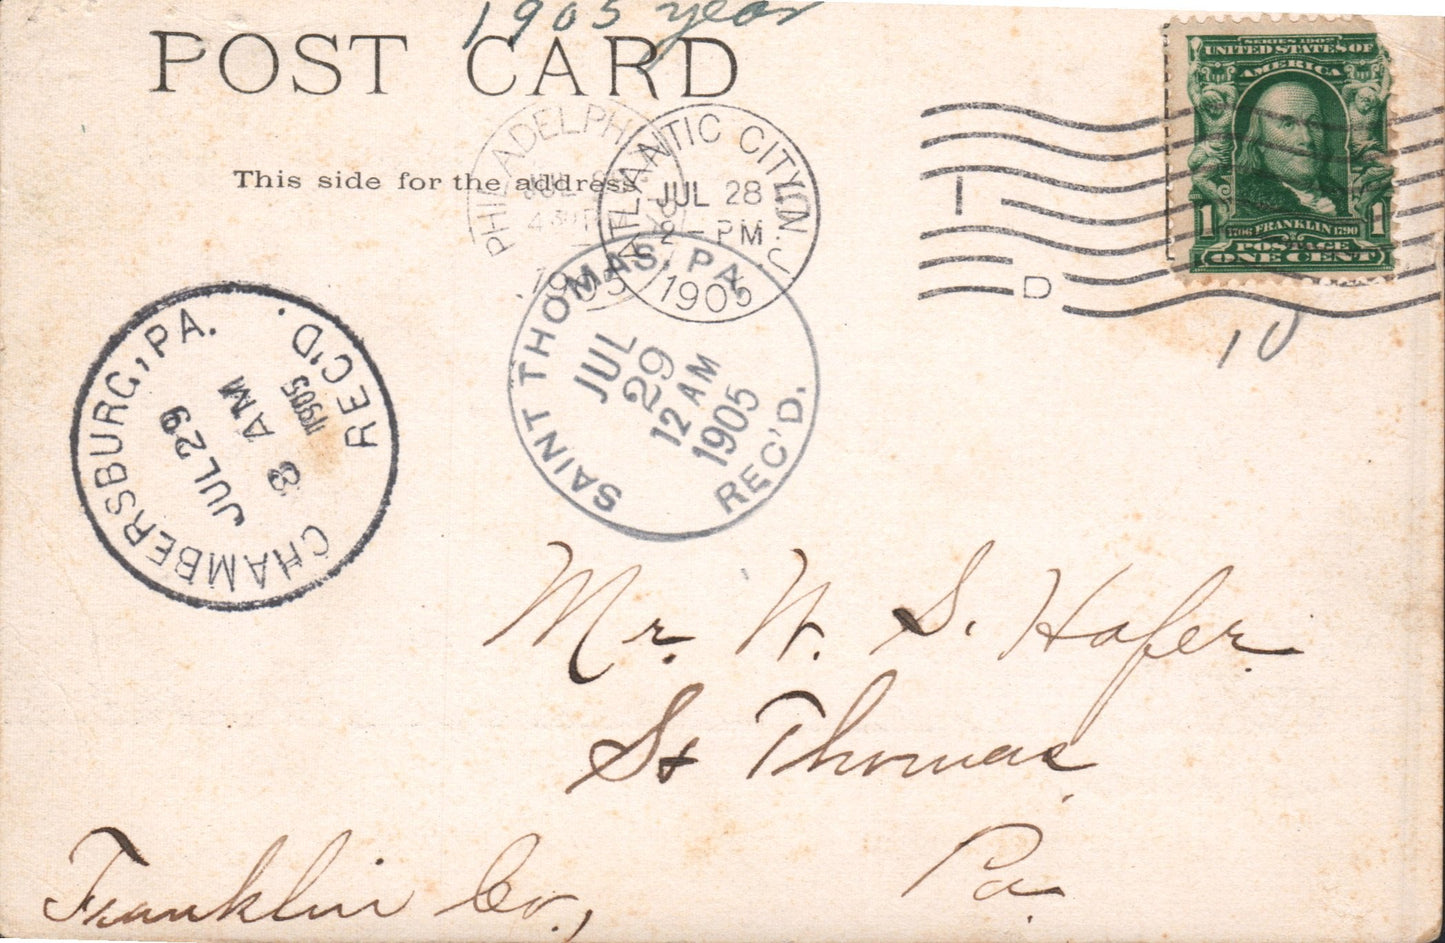 1905 year
POST CARD
This side for the address
PHILADELPHIA
JUL
1905
ATLANTIC CITY, N.J.
JUL 28
2 - PM
1905
I
D
SERIES 1902
UNITED STATES OF
AMERICA
1 1706 FRANKLIN 1790 1
POSTAGE
ONE CENT
10
CHAMBERSBURG, PA.
JUL 29
8 AM
1905
REC'D.
SAINT THOMAS, PA.
JUL
29
12 AM
1905
REC'D.
Mr. W. S. Hafer.
St Thomas
Pa.
Franklin Co.,